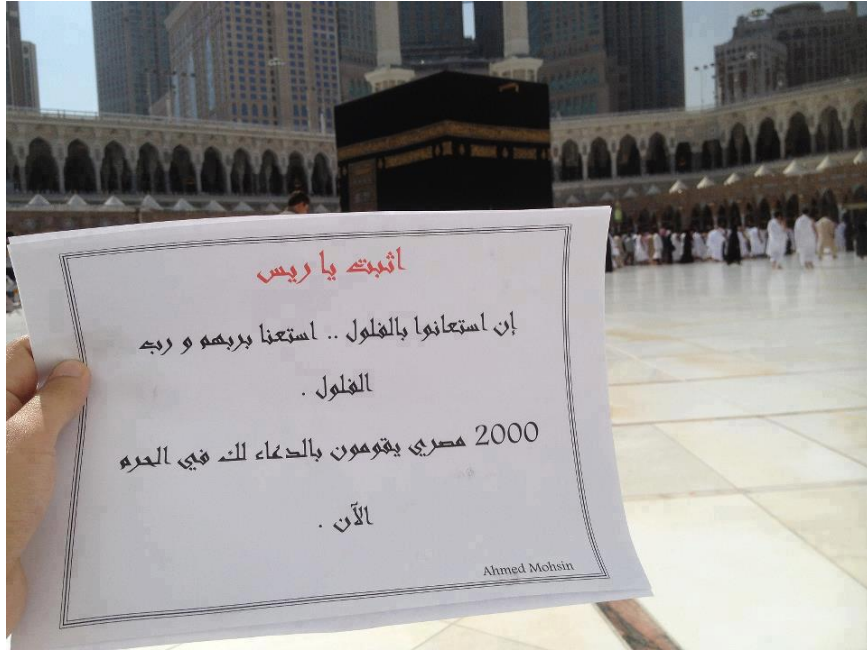 اثبت يا ريس
إن استعانوا بالفلول .. استعنا بربهم و رب
الفلول .
2000 مصري يقومون بالدعاء لك في الحرم
الآن .
Ahmed Mohsin